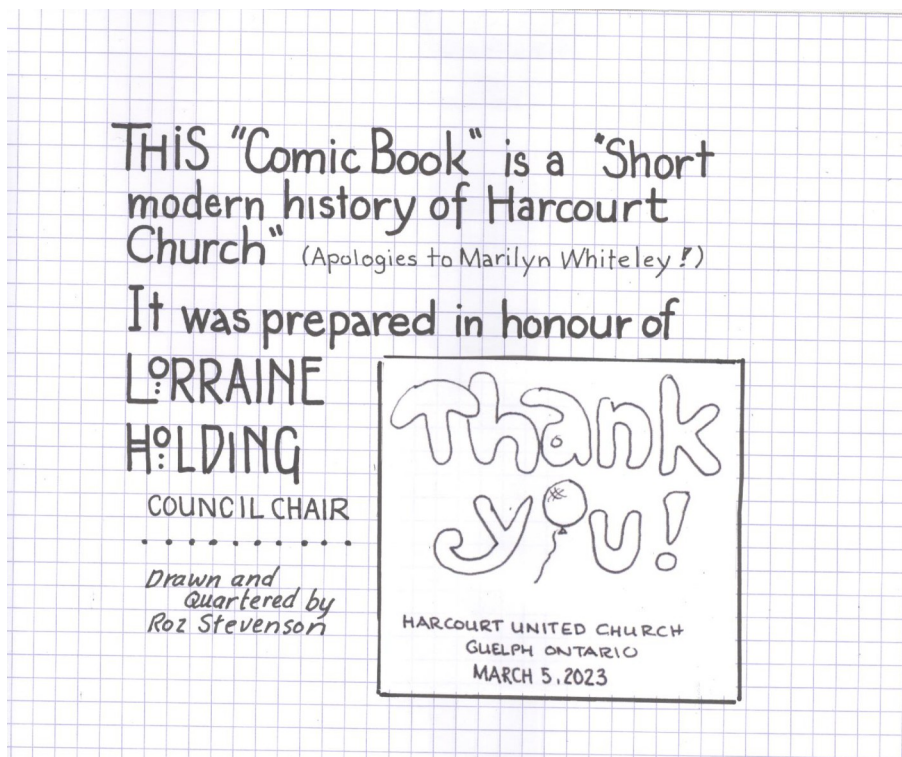 THIS "Comic Book" is a "Short
modern history of Harcourt
Church" (Apologies to Marilyn Whiteley!)
It was prepared in honour of
LORRAINE
HOLDING
COUNCIL CHAIR
...........
Drawn and
Quartered by
Roz Stevenson
Thank
you!
HARCOURT UNITED CHURCH
GUELPH ONTARIO
MARCH 5, 2023